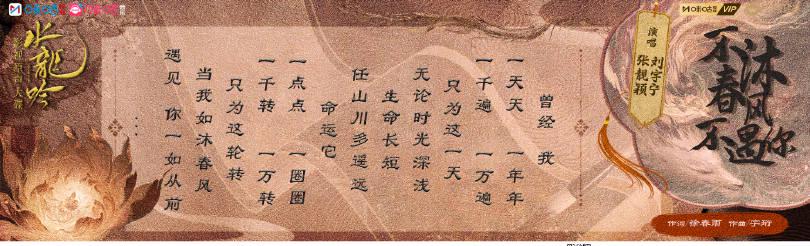 咪咕 VIP
不沐春风不遇你
演唱
刘宇宁
张靓颖
曾经 我
一天天 一年年
一千遍 一万遍
只为这一天
无论时光深浅
生命长短
任山川多遥远
命运它
一点点 一圈圈
一千转 一万转
只为这轮转
当我如沐春风
遇见 你一如从前
水龍吟
作词/徐春雨 作曲/宇珩